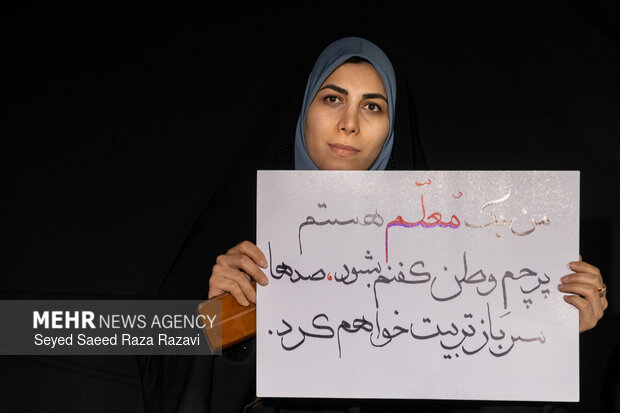 من یک مُعلّم هستم
پرچم وطن کفنم بشود، صدها
سرباز تربیت خواهم کرد.
MEHR NEWS AGENCY
Seyed Saeed Raza Razavi